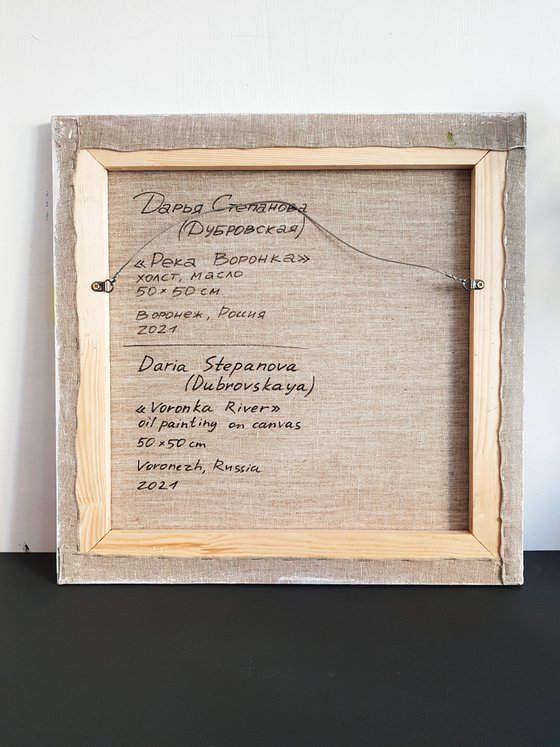 Дарья Степанова
(Дубровская)
«Река Воронка»
холст, масло
50 × 50 см
Воронеж, Россия
2021
Daria Stepanova
(Dubrovskaya)
«Voronka River»
oil painting on canvas
50 × 50 cm
Voronezh, Russia
2021